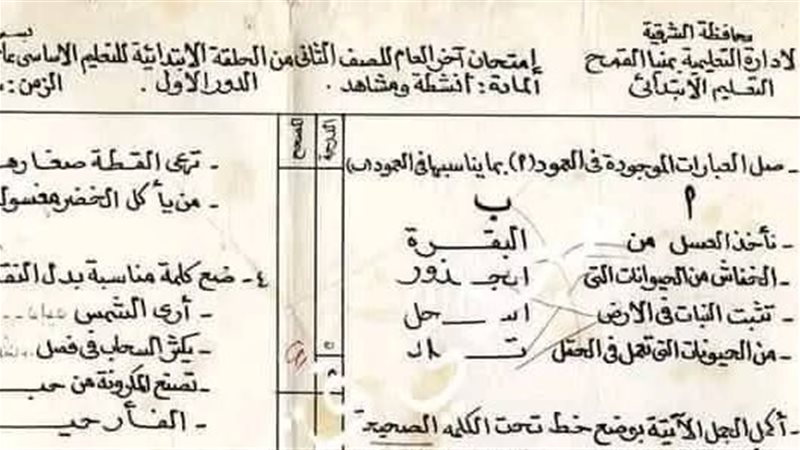 محافظة الشرقية
لادارة التعليمية بمنيا القمح
التعليم الابتدائى
إمتحان آخر العام للصف الثانى من الحلقة الابتدائية للتعليم الاساسى
المادة : أنشطة ومشاهد . الدور الاول . الزمن :
الدرجة
المصحح
- صل العبارات الموجودة فى العمود (٢) بما يناسبها فى العمود (ب)
٢ ب
- نأخذ العسل من البقرة
- الخفاش من الحيوانات التى الجذور
- تثبت النبات فى الارض النحل
- من الحيونات التى تعمل فى الحقل تلد
- أكمل الجمل الآتية بوضع خط تحت الكلمه الصحيحة
- ترعى القطة صغارها
- من يأكل الخضر مغسول
٤ - ضع كلمة مناسبة بدل النق
- أرى الشمس
- يكثر السحاب فى فصل
- تصنع المكرونة من حب
- الفأر حيـ